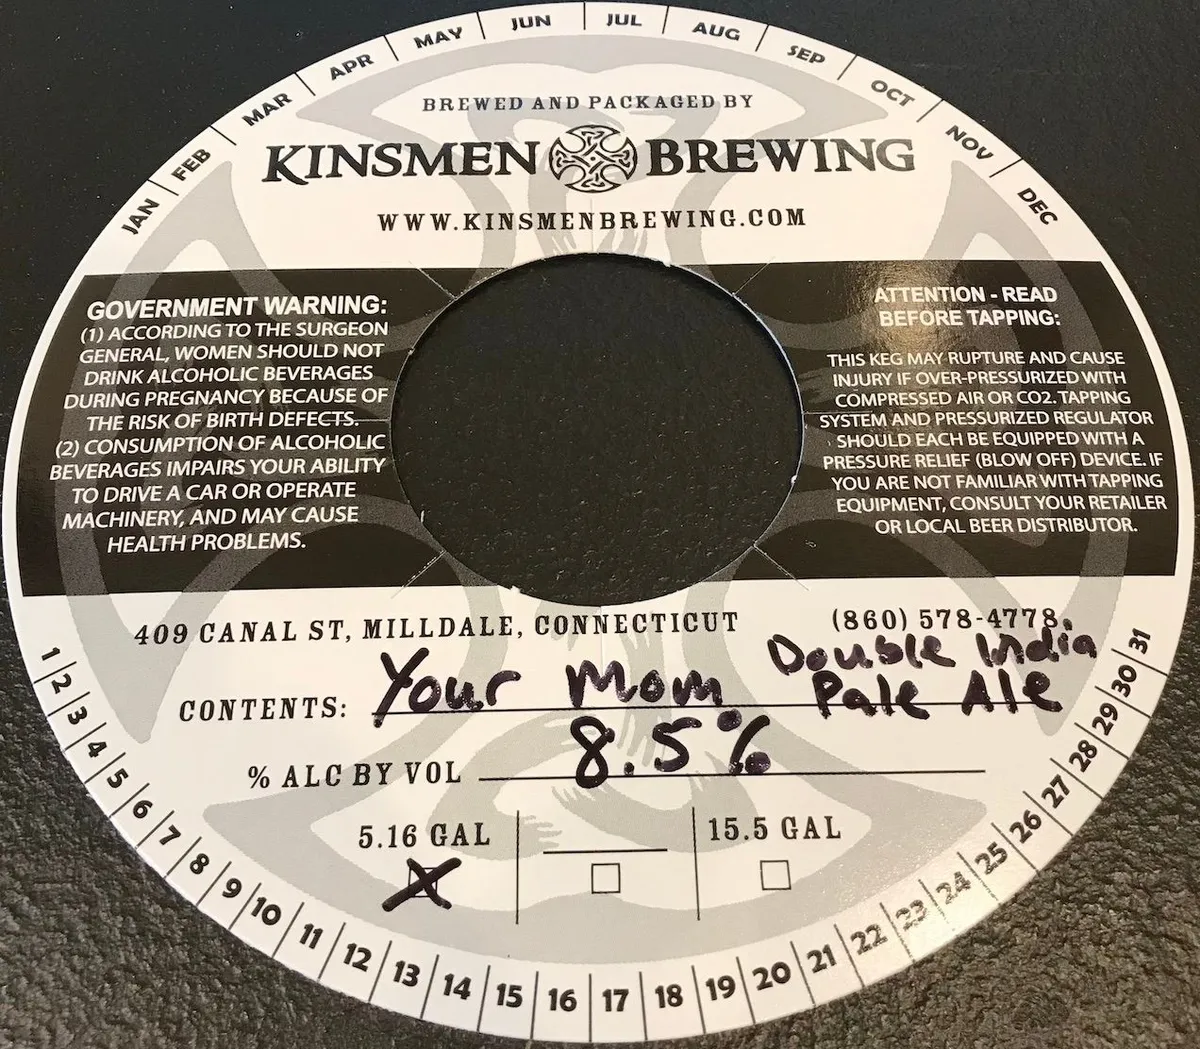 JAN FEB MAR APR MAY JUN JUL AUG SEP OCT NOV DEC
BREWED AND PACKAGED BY
KINSMEN BREWING
WWW.KINSMENBREWING.COM
GOVERNMENT WARNING:
(1) ACCORDING TO THE SURGEON
GENERAL, WOMEN SHOULD NOT
DRINK ALCOHOLIC BEVERAGES
DURING PREGNANCY BECAUSE OF
THE RISK OF BIRTH DEFECTS.
(2) CONSUMPTION OF ALCOHOLIC
BEVERAGES IMPAIRS YOUR ABILITY
TO DRIVE A CAR OR OPERATE
MACHINERY, AND MAY CAUSE
HEALTH PROBLEMS.
ATTENTION - READ
BEFORE TAPPING:
THIS KEG MAY RUPTURE AND CAUSE
INJURY IF OVER-PRESSURIZED WITH
COMPRESSED AIR OR CO2. TAPPING
SYSTEM AND PRESSURIZED REGULATOR
SHOULD EACH BE EQUIPPED WITH A
PRESSURE RELIEF (BLOW OFF) DEVICE. IF
YOU ARE NOT FAMILIAR WITH TAPPING
EQUIPMENT, CONSULT YOUR RETAILER
OR LOCAL BEER DISTRIBUTOR.
409 CANAL ST, MILLDALE, CONNECTICUT (860) 578-4778
CONTENTS: Your Mom Double India
Pale Ale
% ALC BY VOL 8.5%
5.16 GAL 15.5 GAL
X
1 2 3 4 5 6 7 8 9 10 11 12 13 14 15 16 17 18 19 20 21 22 23 24 25 26 27 28 29 30 31